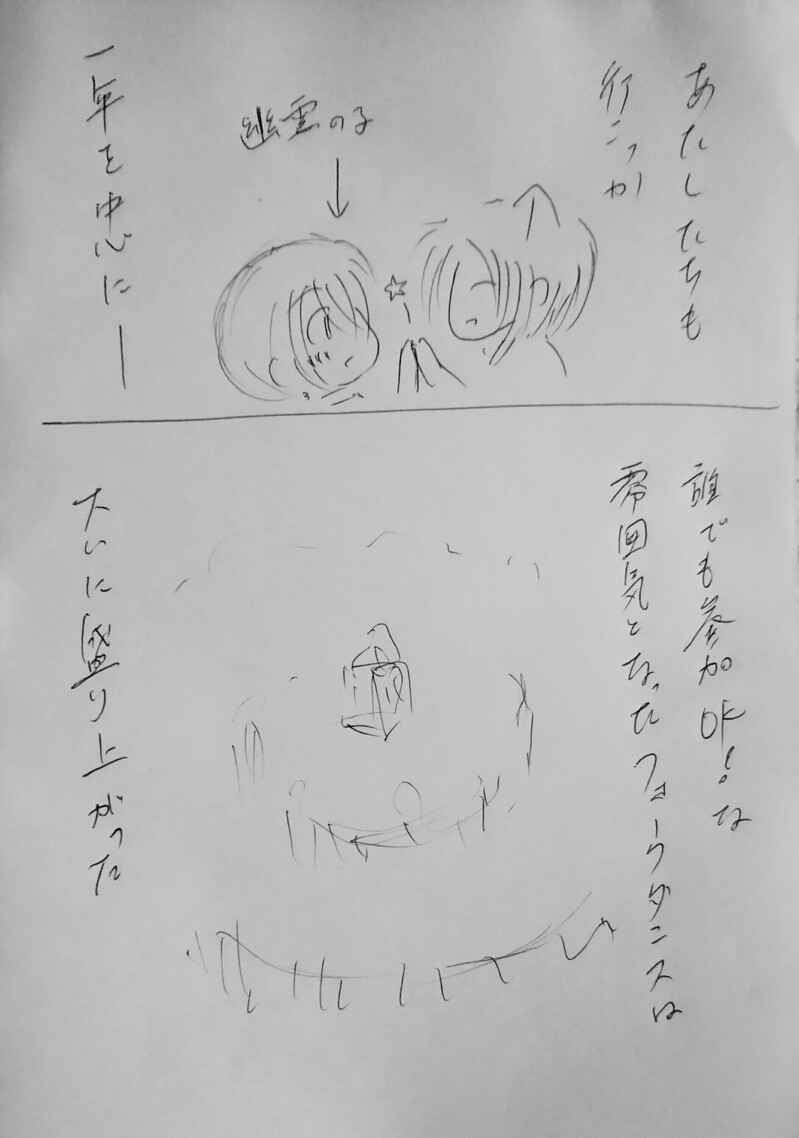 あたしたちも
行こっか
幽霊の子
一年を中心に―
誰でも参加OK!な
雰囲気となったフォークダンスは
大いに盛り上がった